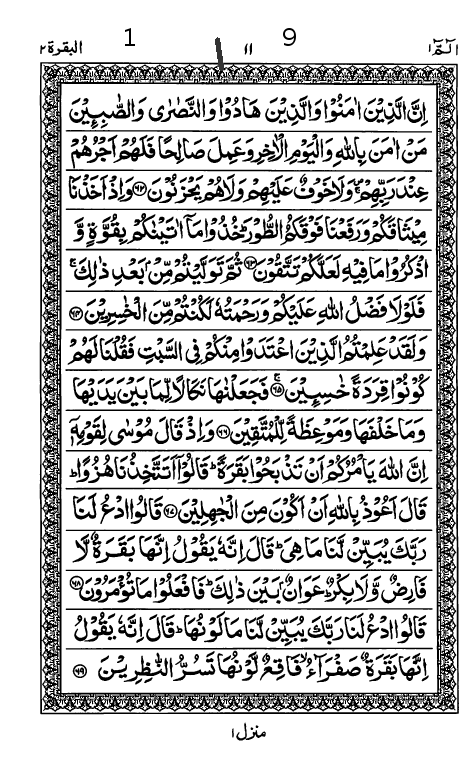 الٓمّٓ ١ 9 ١١ 1 البقرة ٢
اِنَّ الَّذِيْنَ اٰمَنُوْا وَالَّذِيْنَ هَادُوْا وَالنَّصٰرٰى وَالصّٰبِـِٕيْنَ
مَنْ اٰمَنَ بِاللّٰهِ وَالْيَوْمِ الْاٰخِرِ وَعَمِلَ صَالِحًا فَلَهُمْ اَجْرُهُمْ
عِنْدَ رَبِّهِمْ ۚ وَلَا خَوْفٌ عَلَيْهِمْ وَلَا هُمْ يَحْزَنُوْنَ ﴿۶۲﴾ وَاِذْ اَخَذْنَا
مِيْثَاقَكُمْ وَرَفَعْنَا فَوْقَكُمُ الطُّوْرَ ؕ خُذُوْا مَاۤ اٰتَيْنٰكُمْ بِقُوَّةٍ وَّ
اذْكُرُوْا مَا فِيْهِ لَعَلَّكُمْ تَتَّقُوْنَ ﴿۶۳﴾ ثُمَّ تَوَلَّيْتُمْ مِّنْۢ بَعْدِ ذٰلِكَ ۚ
فَلَوْلَا فَضْلُ اللّٰهِ عَلَيْكُمْ وَرَحْمَتُهٗ لَكُنْتُمْ مِّنَ الْخٰسِرِيْنَ ﴿۶۴﴾
وَلَقَدْ عَلِمْتُمُ الَّذِيْنَ اعْتَدَوْا مِنْكُمْ فِى السَّبْتِ فَقُلْنَا لَهُمْ
كُوْنُوْا قِرَدَةً خٰسِـِٕيْنَ ﴿۶۵﴾ ۚ فَجَعَلْنٰهَا نَكَالًا لِّمَا بَيْنَ يَدَيْهَا
وَمَا خَلْفَهَا وَمَوْعِظَةً لِّلْمُتَّقِيْنَ ﴿۶۶﴾ وَاِذْ قَالَ مُوْسٰى لِقَوْمِهٖۤ
اِنَّ اللّٰهَ يَاْمُرُكُمْ اَنْ تَذْبَحُوْا بَقَرَةً ؕ قَالُوْۤا اَتَتَّخِذُنَا هُزُوًا ؕ
قَالَ اَعُوْذُ بِاللّٰهِ اَنْ اَكُوْنَ مِنَ الْجٰهِلِيْنَ ﴿۶۷﴾ قَالُوا ادْعُ لَنَا
رَبَّكَ يُبَيِّنْ لَّنَا مَا هِىَ ؕ قَالَ اِنَّهٗ يَقُوْلُ اِنَّهَا بَقَرَةٌ لَّا
فَارِضٌ وَّلَا بِكْرٌ ؕ عَوَانٌۢ بَيْنَ ذٰلِكَ ؕ فَافْعَلُوْا مَا تُؤْمَرُوْنَ ﴿۶۸﴾
قَالُوا ادْعُ لَنَا رَبَّكَ يُبَيِّنْ لَّنَا مَا لَوْنُهَا ؕ قَالَ اِنَّهٗ يَقُوْلُ
اِنَّهَا بَقَرَةٌ صَفْرَآءُ ۙ فَاقِعٌ لَّوْنُهَا تَسُرُّ النّٰظِرِيْنَ ﴿۶۹﴾
منزل ١